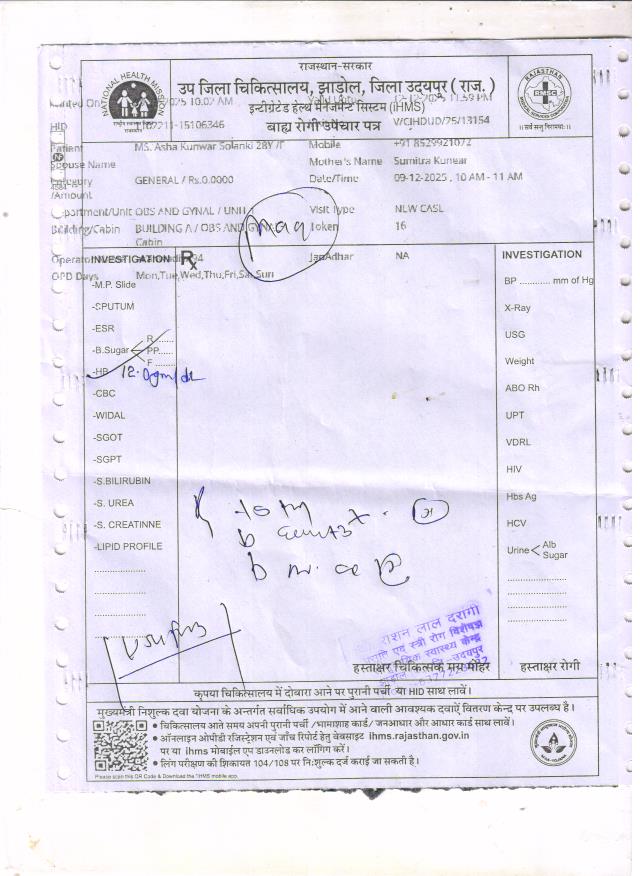 राजस्थान-सरकार
उप जिला चिकित्सालय, झाडोल, जिला उदयपुर ( राज. )
इन्टीग्रेटेड हेल्थ मैनेजमेन्ट सिस्टम (iHMS)
बाह्य रोगी उपचार पत्र
NATIONAL HEALTH MISSION
RAJASTHAN
RMSC
।। सर्वे सन्तु निरामयाः ।।
10:02 AM
11:59 PM
HID 15106346
V/CIHDUD/25/13154
Patient MS. Asha Kunwar Solanki 28Y /F Mobile +91 8529921072
Spouse Name Mother's Name Sumitra Kunwar
Category GENERAL / Rs.0.0000 Date/Time 09-12-2025 , 10 AM - 11 AM
/Amount
Department/Unit OBS AND GYNAL / UNIT Visit Type NEW CASE
Building/Cabin BUILDING A / OBS AND GYN Token 16
Cabin
JanAadhar NA
OPD Days Mon,Tue,Wed,Thu,Fri,Sat,Sun
INVESTIGATION Rx INVESTIGATION
-M.P. Slide
BP ............ mm of Hg
-CPUTUM
X-Ray
-ESR
USG
R......
-B.Sugar PP.....
F .......
Weight
-HB 12.0gm/dl
ABO Rh
-CBC
UPT
-WIDAL
VDRL
-SGOT
HIV
-SGPT
Hbs Ag
-S.BILIRUBIN
HCV
-S. UREA
-S. CREATINNE
Urine Alb
Sugar
-LIPID PROFILE
हस्ताक्षर चिकित्सक मय मोहर हस्ताक्षर रोगी
कृपया चिकित्सालय में दोबारा आने पर पुरानी पर्ची या HID साथ लावें।
मुख्यमंत्री निशुल्क दवा योजना के अन्तर्गत सर्वाधिक उपयोग में आने वाली आवश्यक दवाऐं वितरण केन्द्र पर उपलब्ध है।
• चिकित्सालय आते समय अपनी पुरानी पर्ची /भामाशाह कार्ड/ जनआधार और आधार कार्ड साथ लावें।
• ऑनलाईन ओपीडी रजिस्ट्रेशन एवं जाँच रिपोर्ट हेतु वेबसाइट ihms.rajasthan.gov.in
पर या ihms मोबाईल एप डाउनलोड कर लॉगिन करें।
• लिंग परीक्षण की शिकायत 104/108 पर निःशुल्क दर्ज कराई जा सकती है।
Please scan this QR Code & Download the IHMS mobile app.